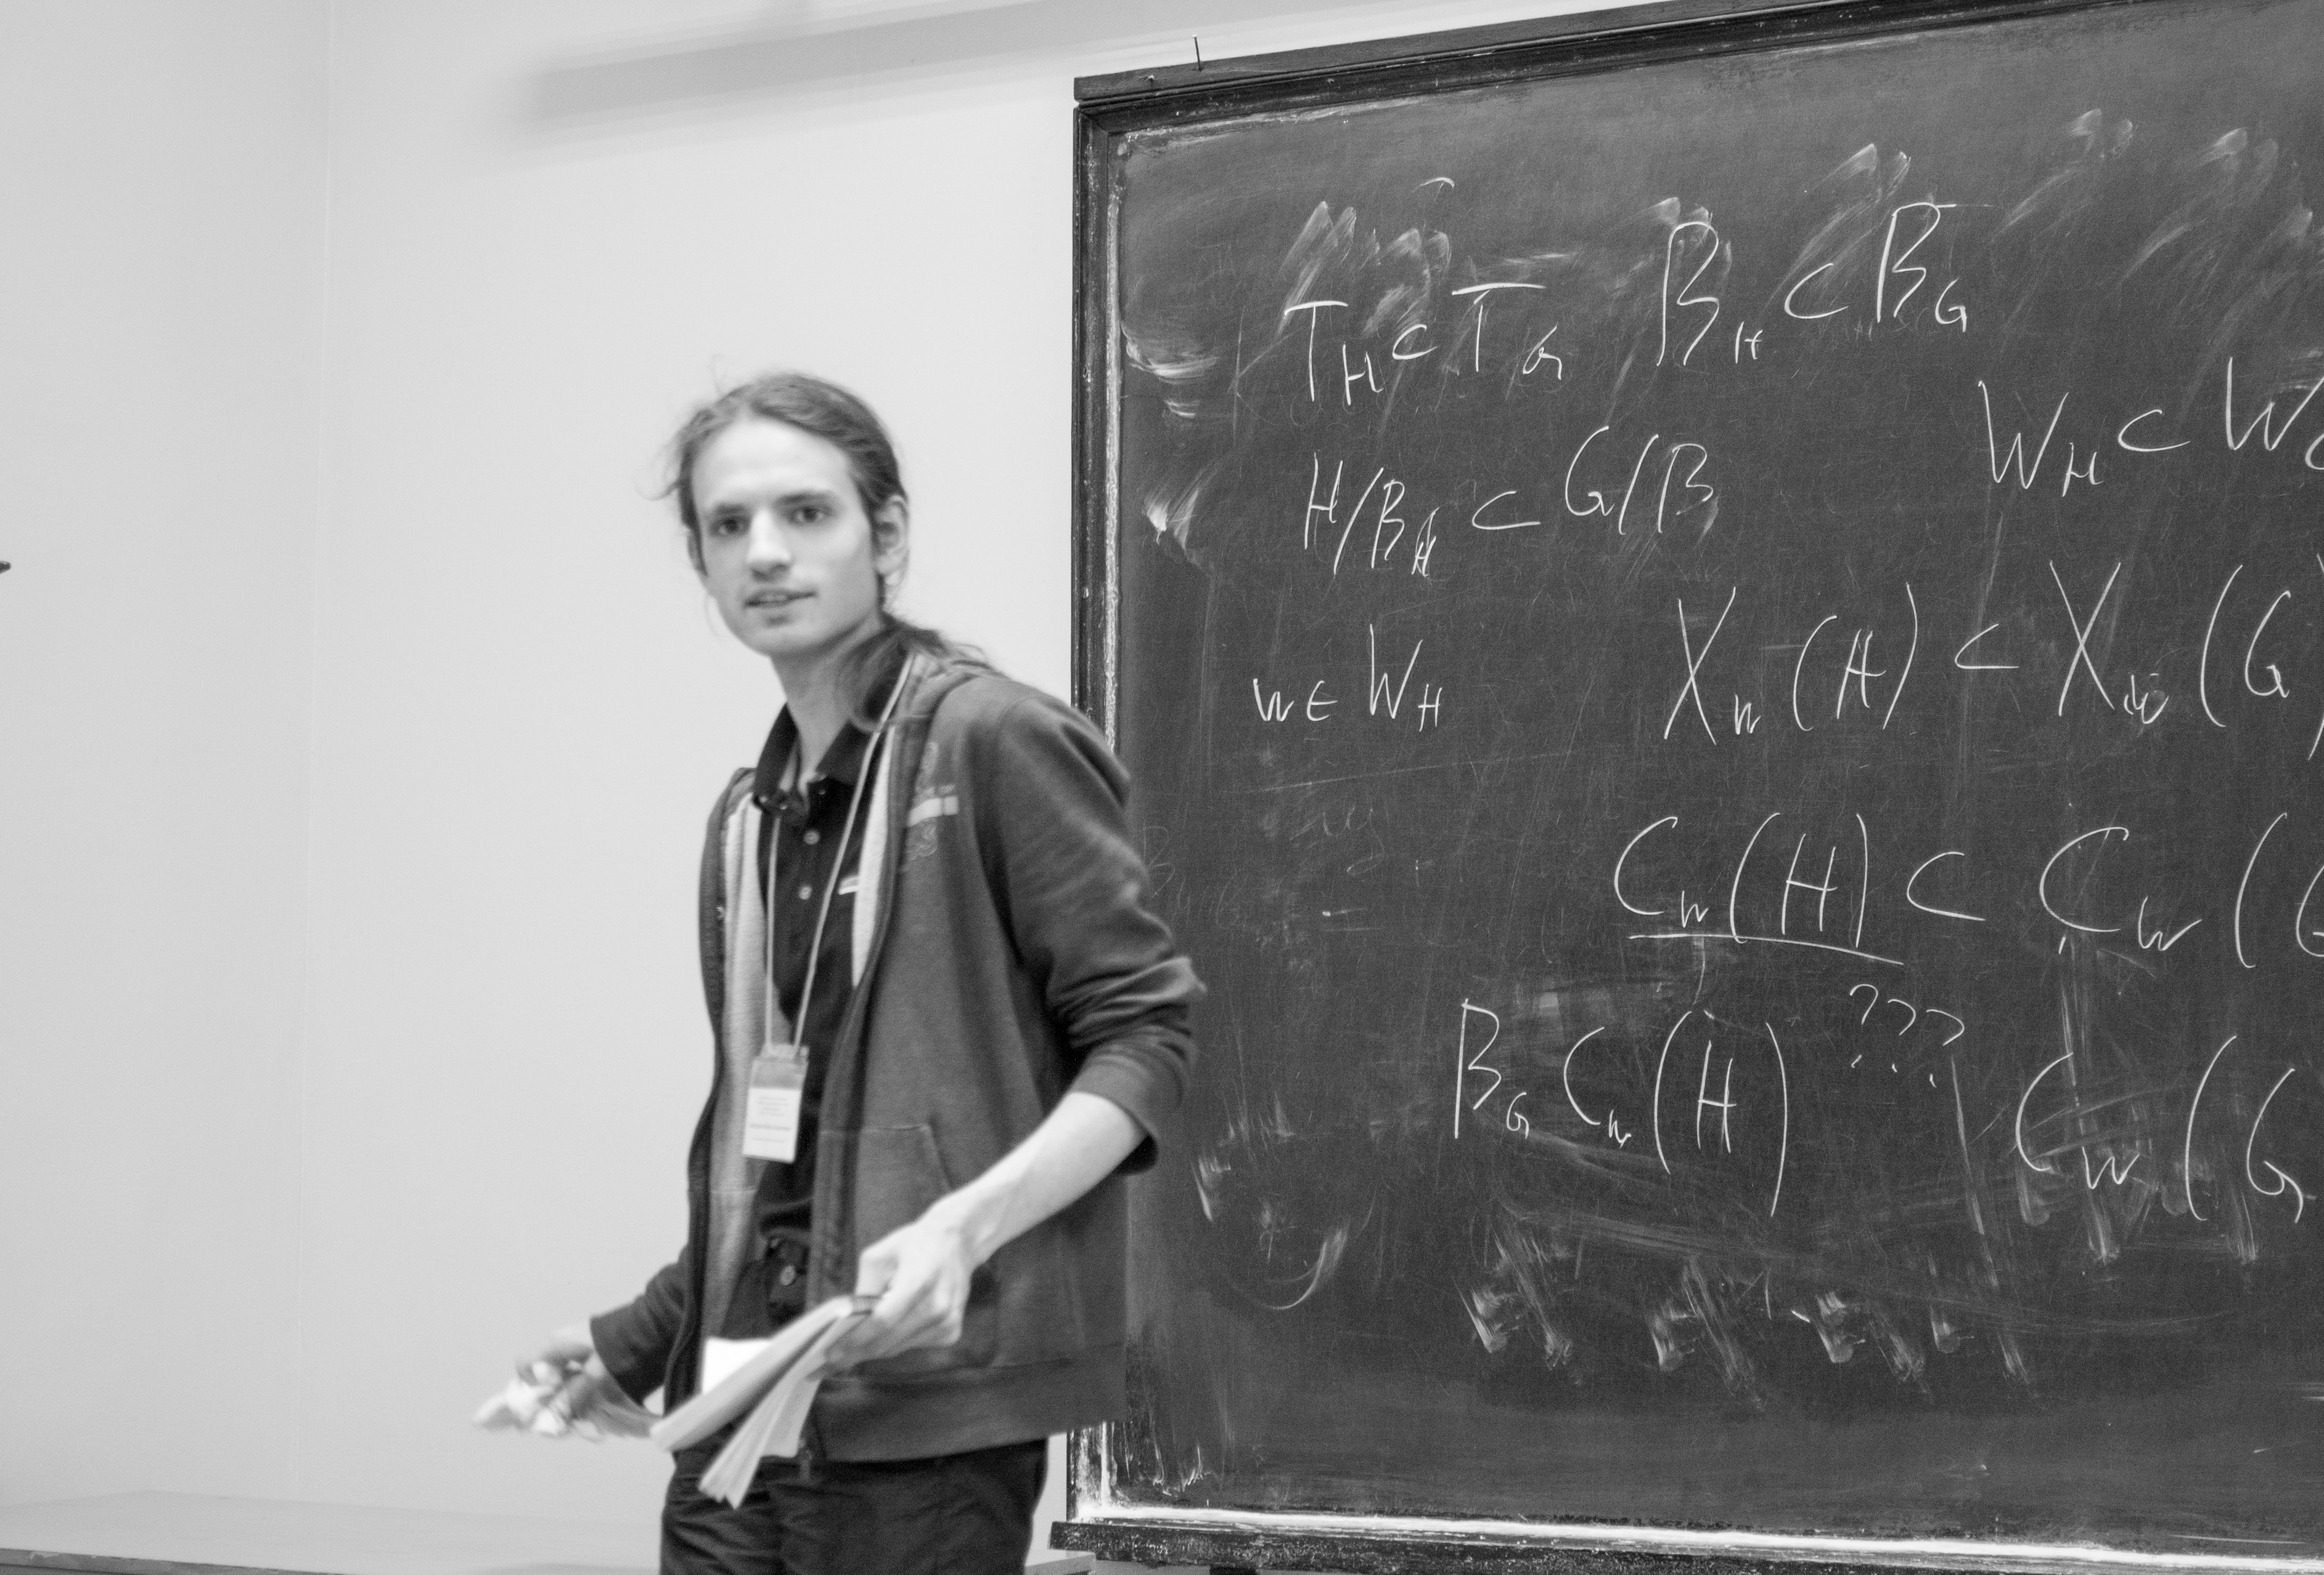 T_H ⊂ T_G B_H ⊂ B_G
H/B_H ⊂ G/B W_H ⊂ W
w ∈ W_H X_w (H) ⊂ X_w (G
C_w (H) ⊂ C_w (G
B_G C_w (H) ??? C_w (G